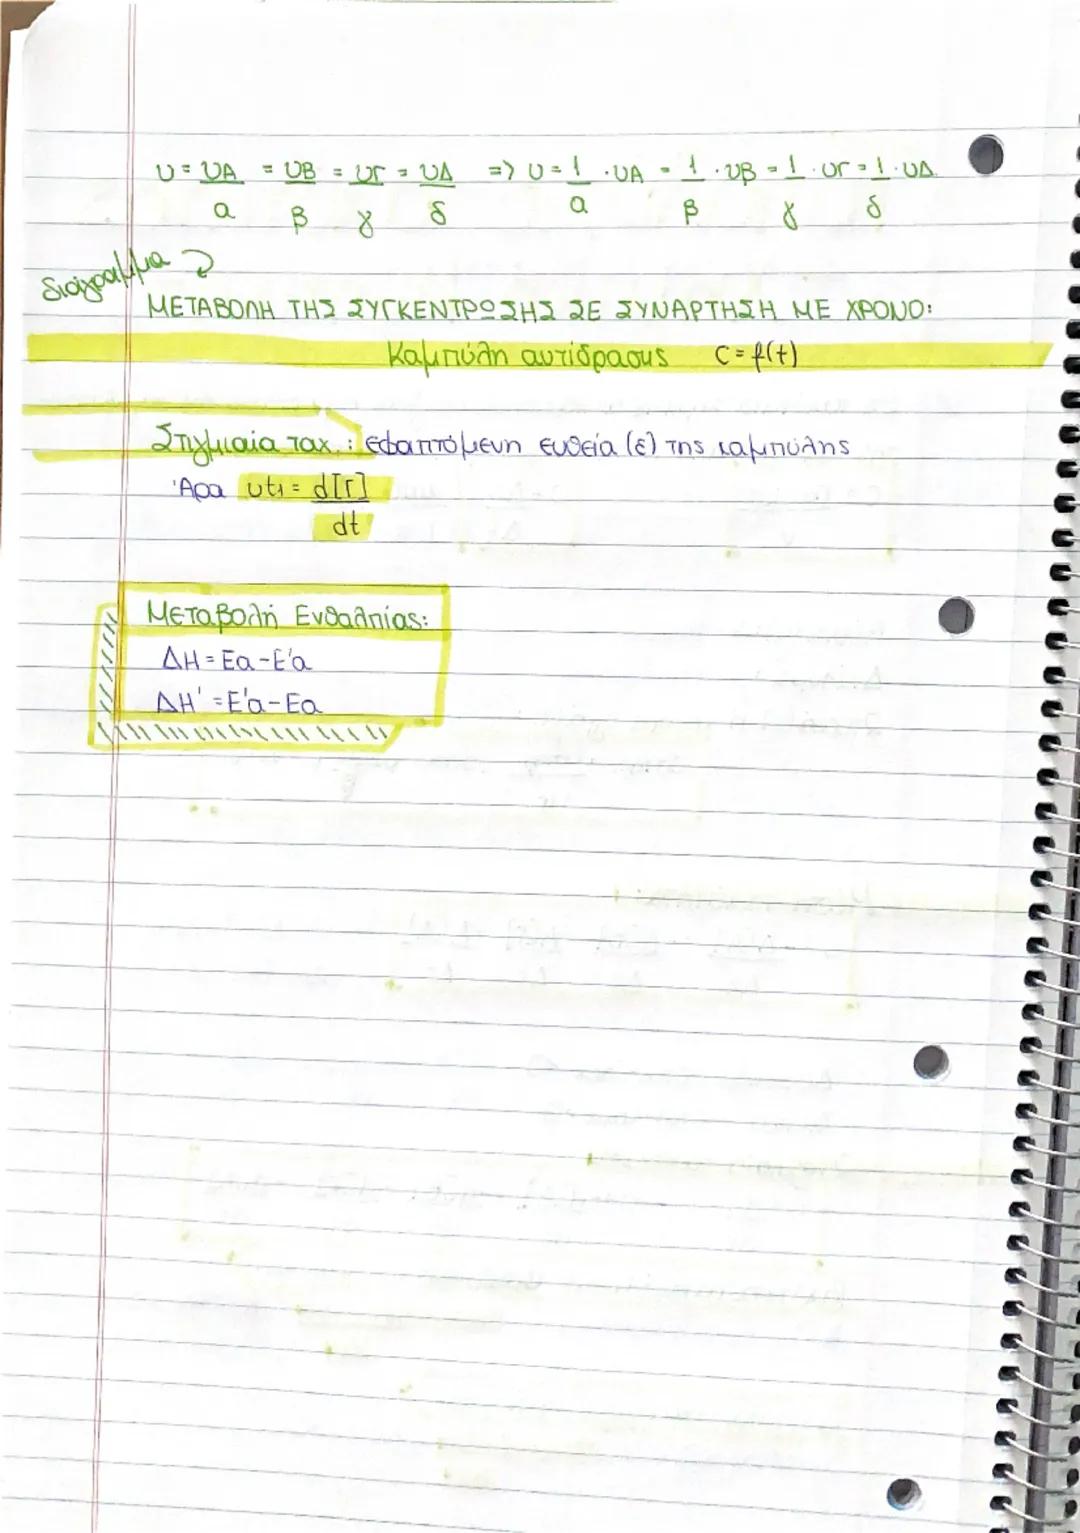 υ = υA/α = υB/β = υΓ/γ = υΔ/δ => υ = 1/α · υA = 1/β · υB = 1/γ · υΓ = 1/δ · υΔ
διάγραμμα
ΜΕΤΑΒΟΛΗ ΤΗΣ ΣΥΓΚΕΝΤΡΩΣΗΣ ΣΕ ΣΥΝΑΡΤΗΣΗ ΜΕ ΧΡΟΝΟ:
Καμπύλη αντίδρασης C = f(t)
Στιγμιαία ταχ.: εφαπτόμενη ευθεία (ε) της καμπύλης
Άρα υt1 = d[Γ]/dt
Μεταβολή Ενθαλπίας:
ΔΗ = Εα - Ε'α
ΔΗ' = Ε'α - Εα